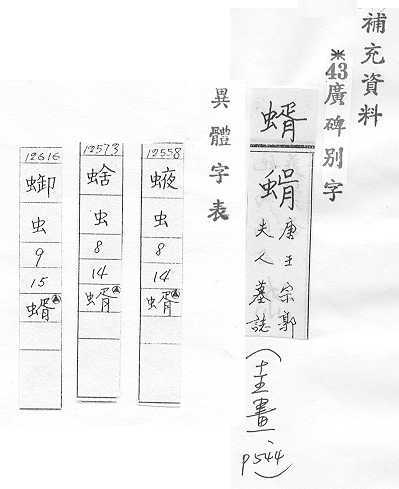 補充資料
※43廣碑别字
蝑
唐王宗郭
夫人墓誌
(圭畫、
p544)
異體字表
12558
蛦
虫
8
14
蝑
12573
蛒
虫
8
14
蝑
12616
虫
9
15
蝑